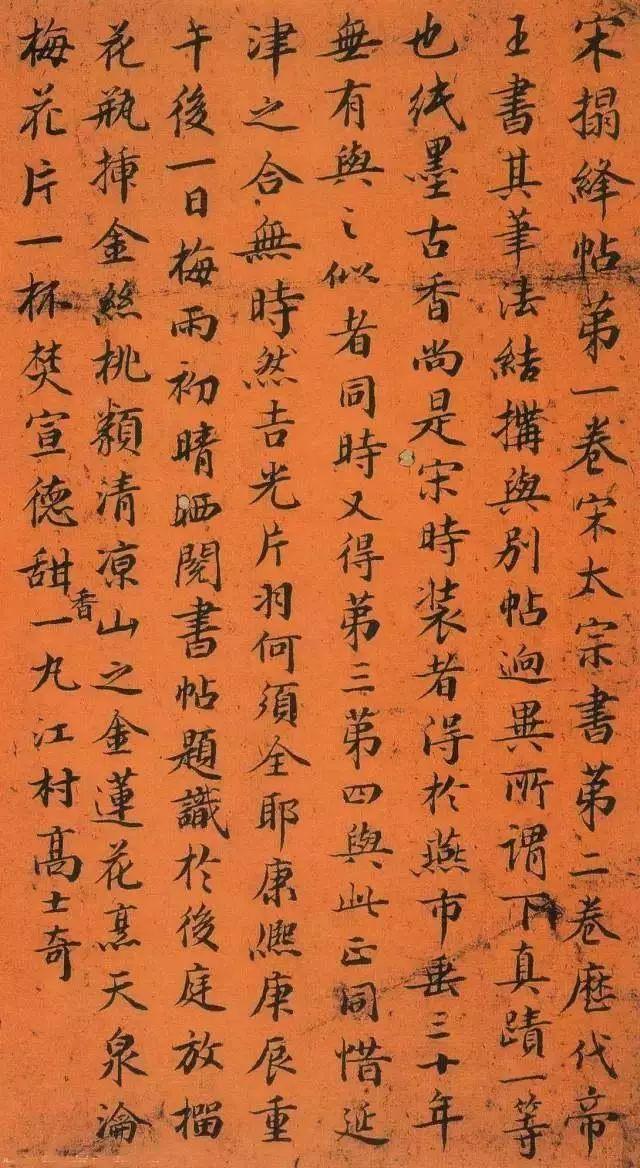 宋搨絳帖第一卷宋太宗書第二卷歷代帝
王書其筆法結搆與別帖逈異所謂下真蹟一等
也紙墨古香尚是宋時装者得於燕市垂三十年
無有與之似者同時又得第三第四與此正同惜延
津之合無時然吉光片羽何須全耶康熙庚辰重
午後一日梅雨初晴晒閱書帖題識於後庭放榴
花瓶揷金絲桃纇清凉山之金蓮花烹天泉瀹
梅花片一杯焚宣德甜香一丸江村高士奇